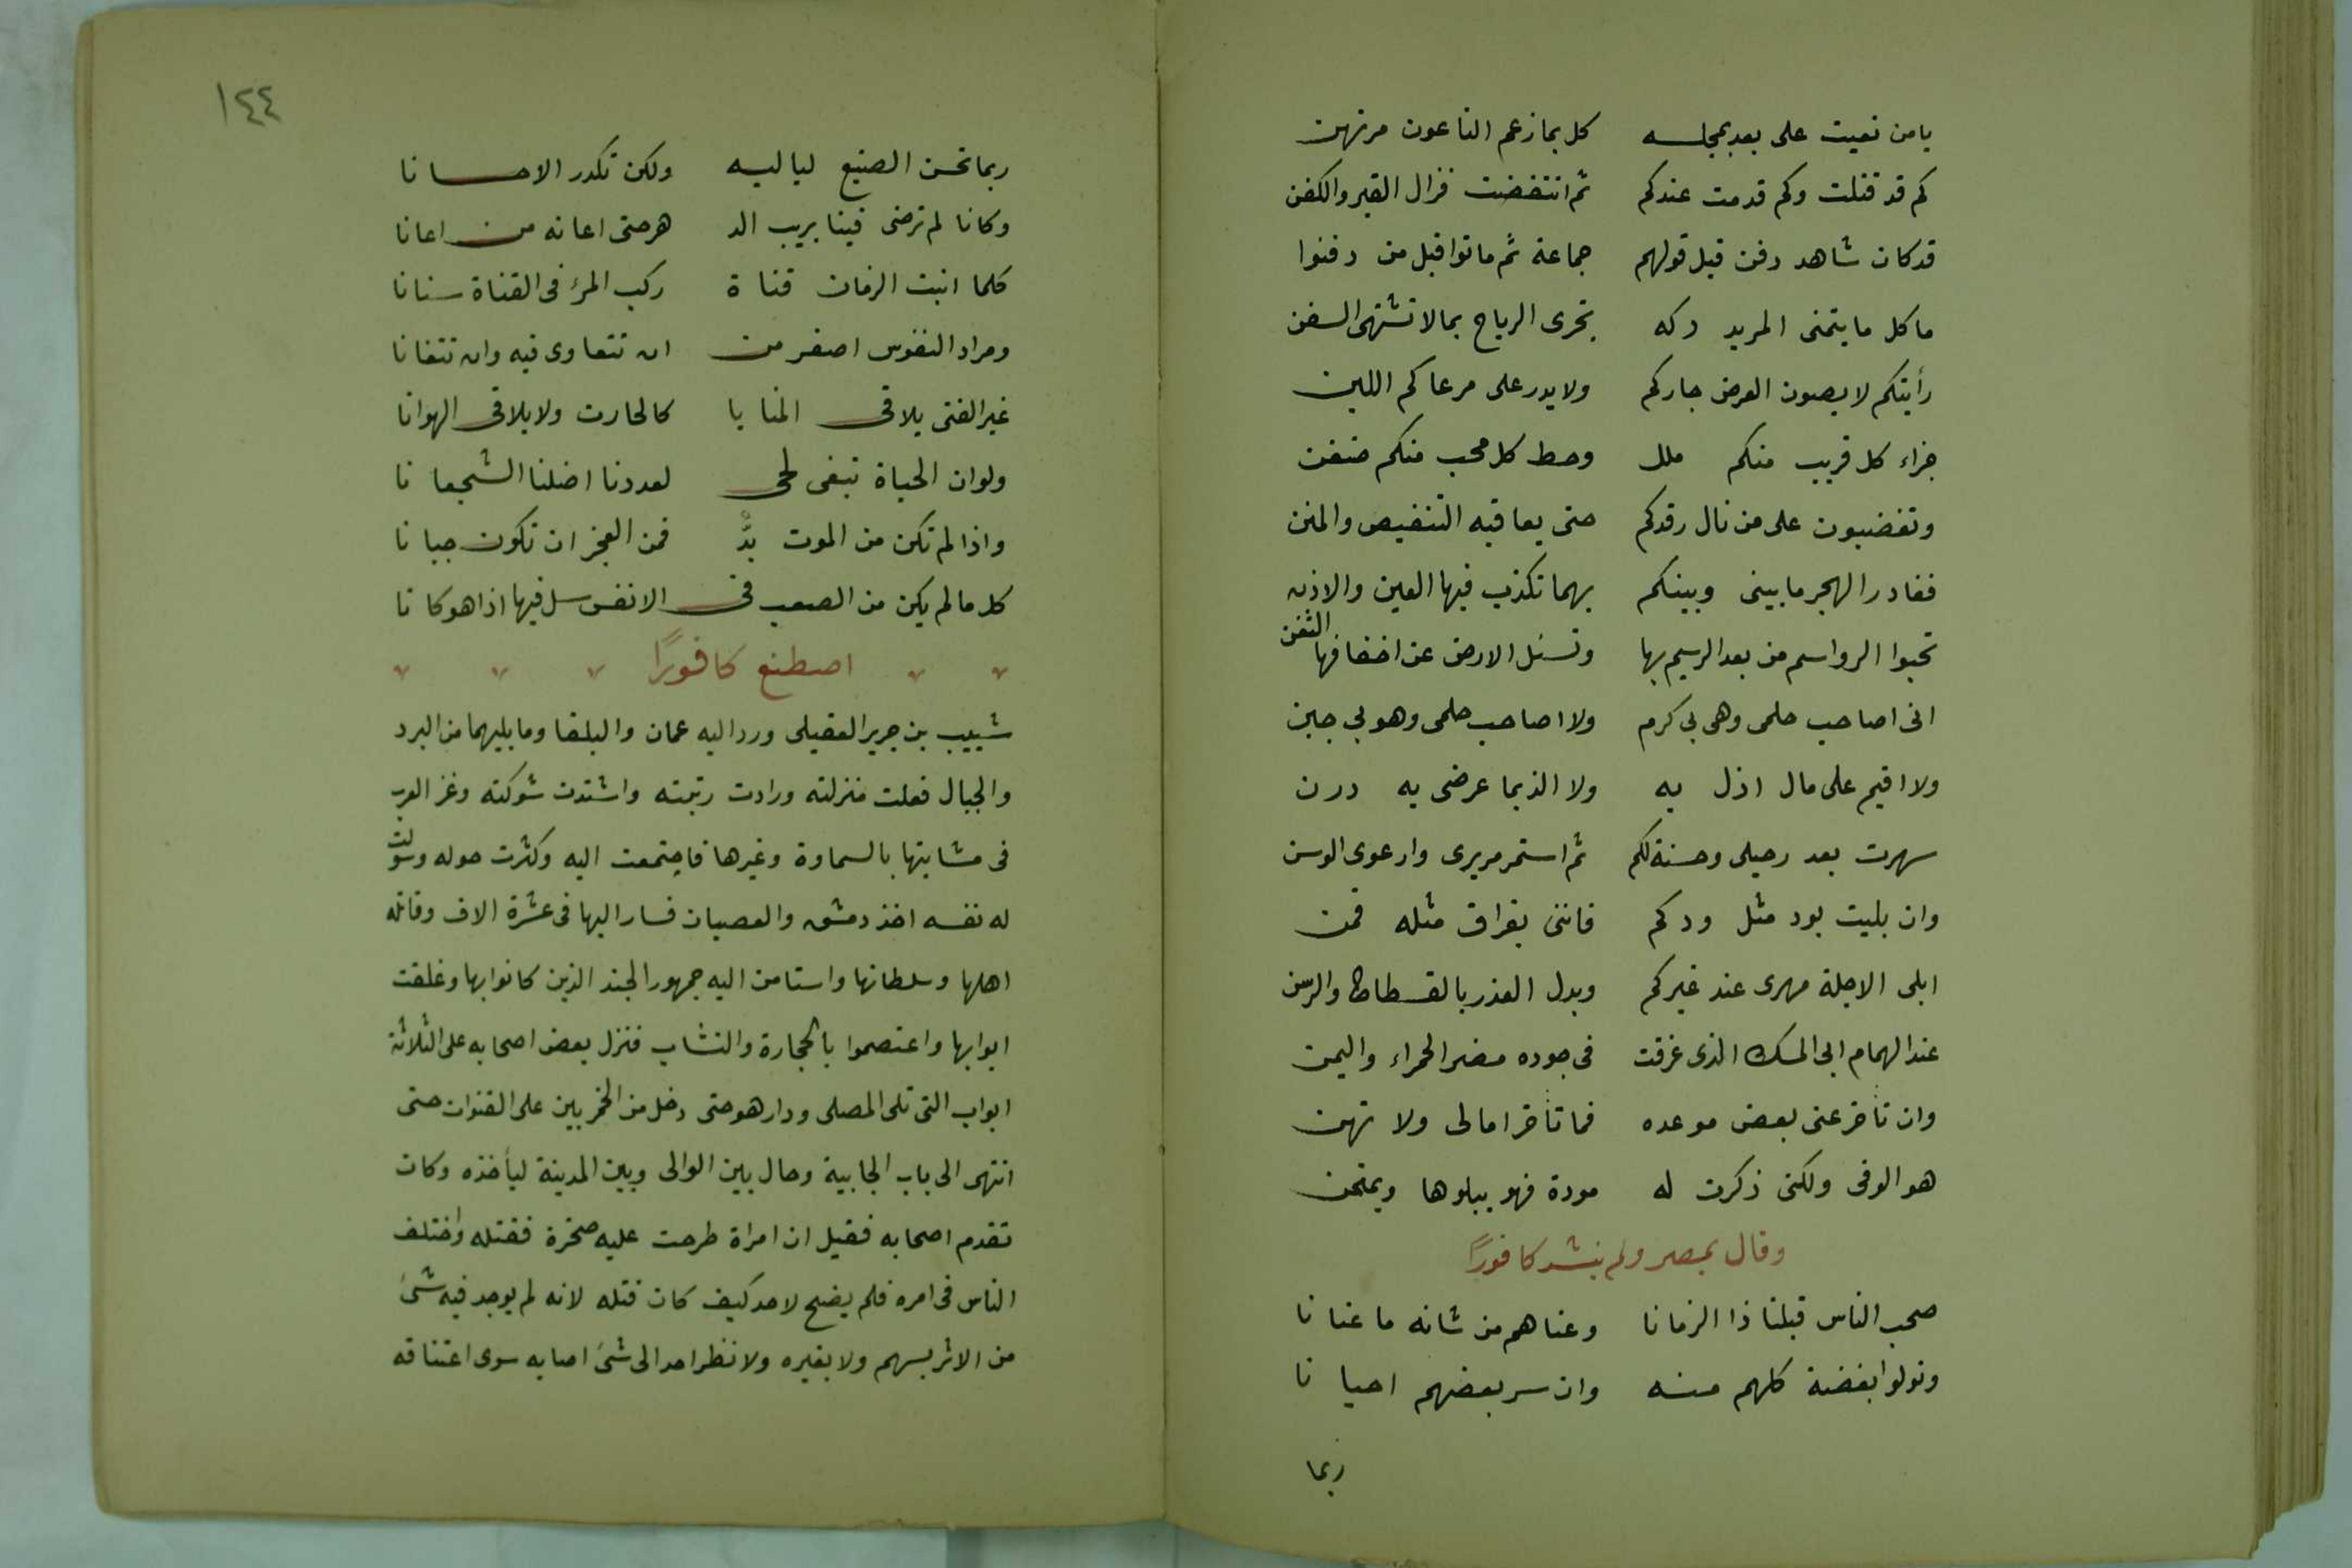 يامن نعيت على بعد بمجلسه كل بما زعم الناعون مرتهن
كم قد قتلت وكم قدمت عندكم ثم انتفضت فزال القبر والكفن
قد كان شاهد دفن قبل قولهم جماعة ثم ماتوا قبل من دفنوا
ما كل ما يتمنى المريد ركه تجرى الرياح بمالا تشتهى السفن
رأيتكم لا يصون العرض جاركم ولا يدر على مرعاكم اللبن
جزاء كل قريب منكم ملل وحط كل محب منكم ضغن
وتغضبون على من نال رفدكم حتى يعاقبه التنغيص والمنن
فغادر الهجر ما بينى وبينكم بهما تكذب فيها العين والاذن
تحبوا الرواسم من بعد الرسيم بها وتسئل الارض عن اخفافها الثفن
انى اصاحب حلمى وهى بى كرم ولا اصاحب حلمى وهو بى جبن
ولا اقيم على مال اذل به ولا الذ بما عرضى به درن
سهرت بعد رحيلى وحسنة لكم ثم استمر مريرى وارعوى الوسن
وان بليت بود مثل ودكم فاننى بفراق مثله قمن
ابلى الاجلة مهرى عند غيركم وبدل العذر بالقسطاط والرسن
عند الهمام ابى المسك الذى غرقت فى جوده مضر الحمراء واليمن
وان تأخر عنى بعض موعده فما تأخر امالى ولا تهن
هو الوفى ولكنى ذكرت له مودة فهو يبلوها ويمتحن
وقال بمصر ولم ينشد كافورًا
صحب الناس قبلنا ذا الزمانا وعناهم من شانه ما عنانا
وتولوا بغضة كلهم منه وان سر بعضهم احيانا
ربما
١٤٤
ربما تحسن الصنيع لياليه ولكن تكدر الاحسانا
وكانا لم ترضى فينا بريب الد هر حتى اعانه من اعانا
كلما انبت الزمان قناة ركب المرء فى القناة سنانا
ومراد النفوس اصغر من ان تتعاوى فيه وان تتفانا
غير الفتى يلاقى المنايا كالحات ولا يلاقى الهوانا
ولوان الحياة تبقى لحى لعددنا اضلنا الشجعانا
واذا لم تكن من الموت بدٌّ فمن العجز ان تكون جبانا
كل مالم يكن من الصعب فى الانفس سل فيها اذا هو كانا
اصطنع كافورًا
شبيب بن جرير العقيلى ورد اليه عمان والبلقا وما يليهما من البرد
والجبال فعلت منزلته وزادت رتبته واشتدت شوكته وغز العرب
فى مشايتها بالسماوة وغيرها فاجتمعت اليه وكثرت حوله وسولت
له نفسه اخذ دمشق والعصيان فسار اليها فى عشرة الاف وقاتله
اهلها وسلطانها واستامن اليه جمهور الجند الذين كانوا بها وغلقت
ابوابها واعتصموا بالحجارة والنشاب فنزل بعض اصحابه على الثلاثة
ابواب التى تلى المصلى ودار هو حتى دخل من الخمريين على القنوات حتى
انتهى الى باب الجابية وحال بين الوالى وبين المدينة ليأخذه وكان
تقدم اصحابه فقيل ان امراة طرحت عليه صخرة فقتله واختلف
الناس فى امره فلم يضح لاحد كيف كان قتله لانه لم يوجد فيه شئ
من الاثر بسهم ولا بغيره ولا نظر احد الى شئ اصابه سوى اعتناقه